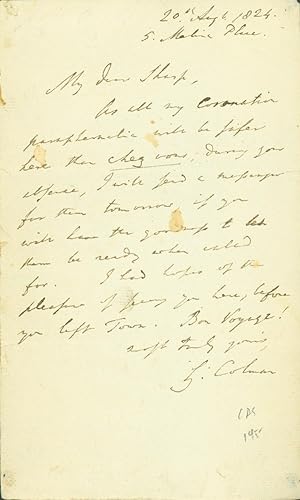 20th Augt 1824.
5. Melina Place.
My dear Sharp,
As all my Coronation
paraphernalia will be safer
here than chez vous, during your
absence, I will send a messenger
for them tomorrow, if you
will have the goodness to let
them be ready when called
for. I had hopes of the
pleasure of seeing you here, before
you left Town. Bon Voyage!
most truly yours,
G: Colman